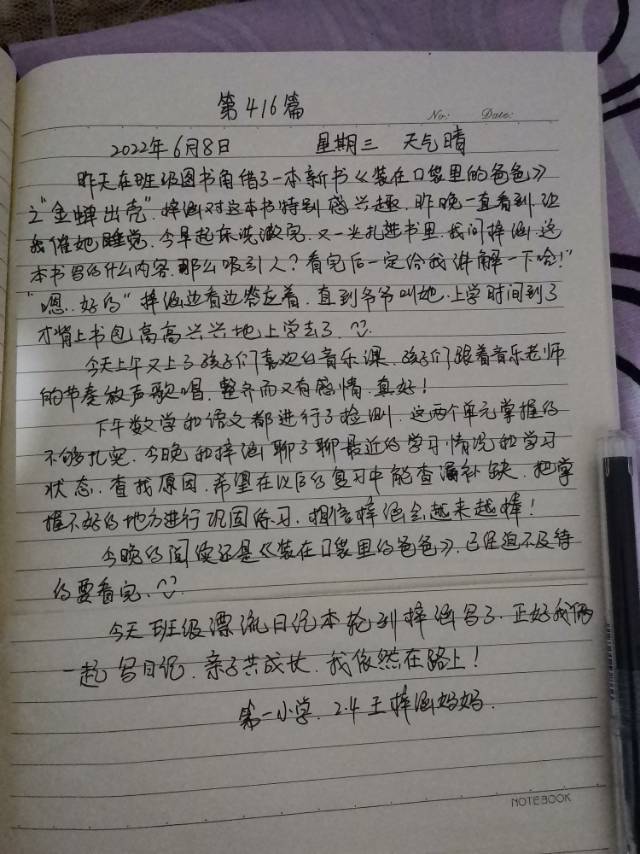 第416篇
No: Date:
2022年6月8日 星期三 天气晴
昨天在班级图书角借了一本新书《装在口袋里的爸爸》
之"金蝉出壳",梓涵对这本书特别感兴趣,昨晚一直看到让
我催她睡觉,今早起床洗漱完,又一头扎进书里,我问梓涵,这
本书写的什么内容,那么吸引人?看完后一定给我讲解一下哈!"
"嗯,好的"梓涵边看边答应着,直到爷爷叫她,上学时间到了
才背上书包高高兴兴地上学去了.
今天上午又上了孩子们喜欢的音乐课,孩子们跟着音乐老师
的节奏放声歌唱,整齐而又有感情,真好!
下午数学和语文都进行了检测,这两个单元掌握的
不够扎实,今晚和梓涵聊了聊最近的学习情况和学习
状态,查找原因,希望在以后的复习中能查漏补缺,把掌
握不好的地方进行巩固练习,相信梓涵会越来越棒!
今晚的阅读还是《装在口袋里的爸爸》,已经迫不及待
的要看完,
今天班级漂流日记本轮到梓涵写了,正好我俩
一起写日记,亲子共成长,我依然在路上!
第一小学,2.4王梓涵妈妈.
NOTEBOOK